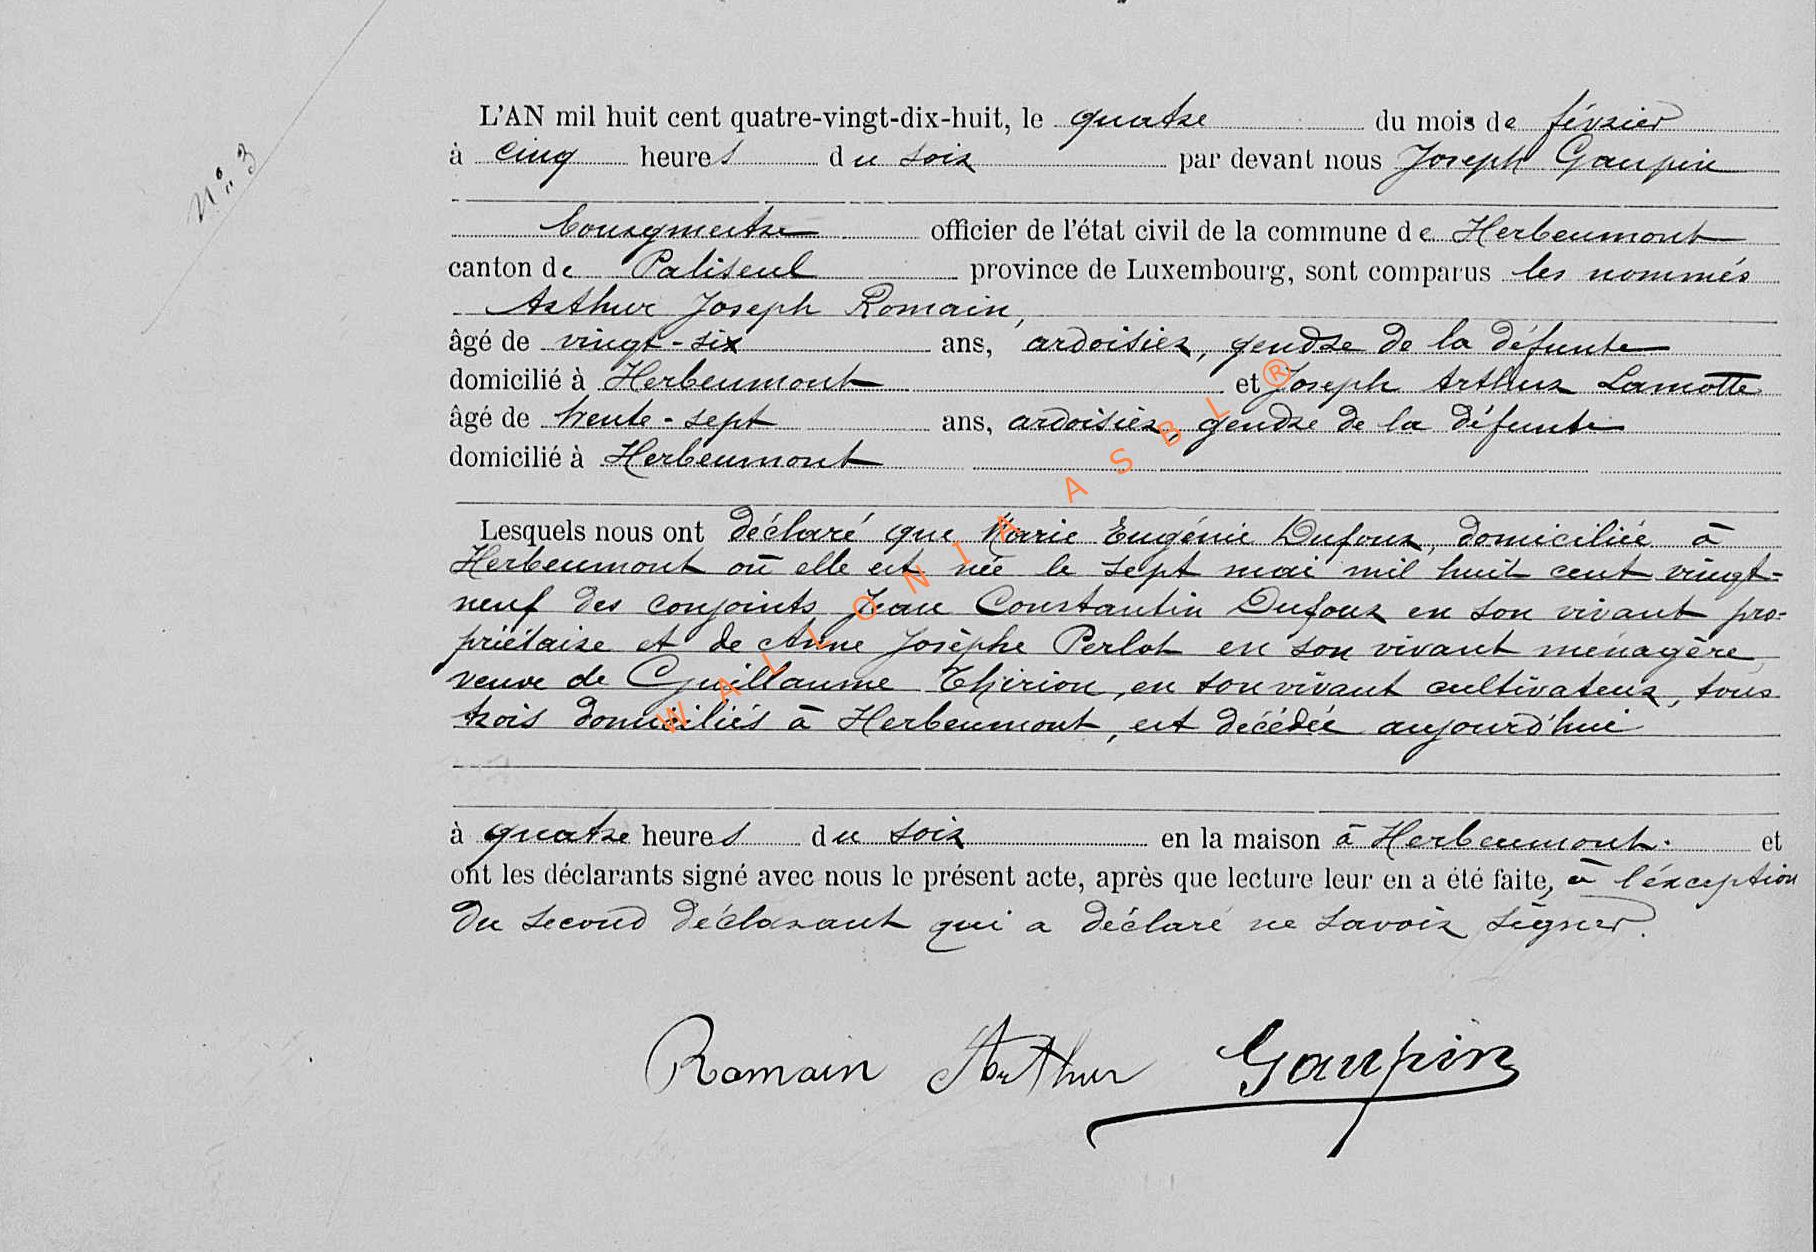 N° 3
L'AN mil huit cent quatre-vingt-dix-huit, le quatre du mois de février
à cinq heures du soir par devant nous Joseph Gaupin
Bourgmestre officier de l'état civil de la commune de Herbeumont
canton de Paliseul province de Luxembourg, sont comparus les nommés
Arthur Joseph Romain,
âgé de vingt-six ans, ardoisier, gendre de la défunte
domicilié à Herbeumont et Joseph Arthur Lamotte
âgé de trente-sept ans, ardoisier, gendre de la défunte
domicilié à Herbeumont
Lesquels nous ont déclaré que Marie Eugénie Dufour, domiciliée à
Herbeumont où elle est née le sept mai mil huit cent vingt-
neuf des conjoints Jean Constantin Dufour en son vivant pro-
priétaire et de Anne Josèphe Perlot en son vivant ménagère,
veuve de Guillaume Thirion, en son vivant cultivateur, tous
trois domiciliés à Herbeumont, est décédée aujourd'hui
à quatre heures du soir en la maison à Herbeumont. et
ont les déclarants signé avec nous le présent acte, après que lecture leur en a été faite, à l'éxception
du second déclarant qui a déclaré ne savoir signer.
Romain Arthur Gaupin
WALLONIA ASBL ®